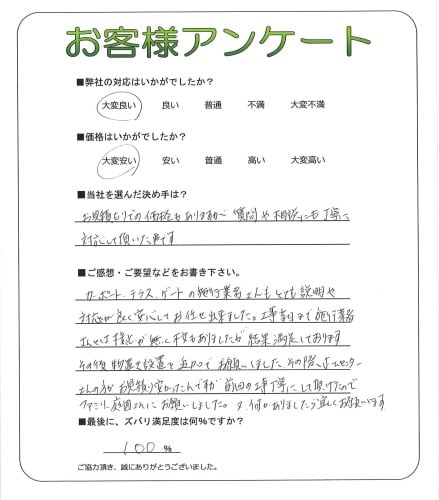 お客様アンケート
■弊社の対応はいかがでしたか？
大変良い 良い 普通 不満 大変不満
■価格はいかがでしたか？
大変安い 安い 普通 高い 大変高い
■当社を選んだ決め手は？
お見積もりでの価格もありますが 質問や相談にも丁寧に
対応して頂いた点です
■ご感想・ご要望などをお書き下さい。
カーポート、テラス、ゲートの施行業者さんもとても説明や
対応が良く安心してお任せ出来ました。工事当日まで施行業者
さんとは接点が無く不安もありましたが 結果満足しております
その後 物置も設置を追加でお願いしました、その際、センター
さんの方がお見積り安かったんですが 前回の工事丁寧にして頂けたので
ファミリー庭園さんにお願いしました。又、何かありましたら宜しくお願いします
■最後に、ズバリ満足度は何％ですか？
100 %
ご協力頂き、誠にありがとうございました。